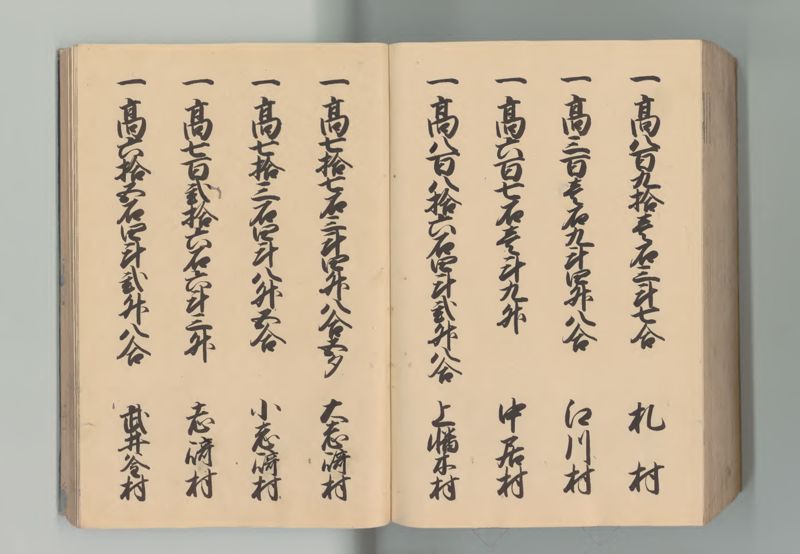 一高八百九拾壱石三斗七合 札村
一高三百壱石九斗四升八合 江川村
一高六百七石壱斗九升 中居村
一高八百八拾六石四斗弐升八合 上幡木村
一高七拾七石三斗四升八合五夕 大志崎村
一高七拾三石四斗八升五合 小志崎村
一高七百弐拾六石六斗三升 志崎村
一高六拾五石四斗弐升八合 武井釜村